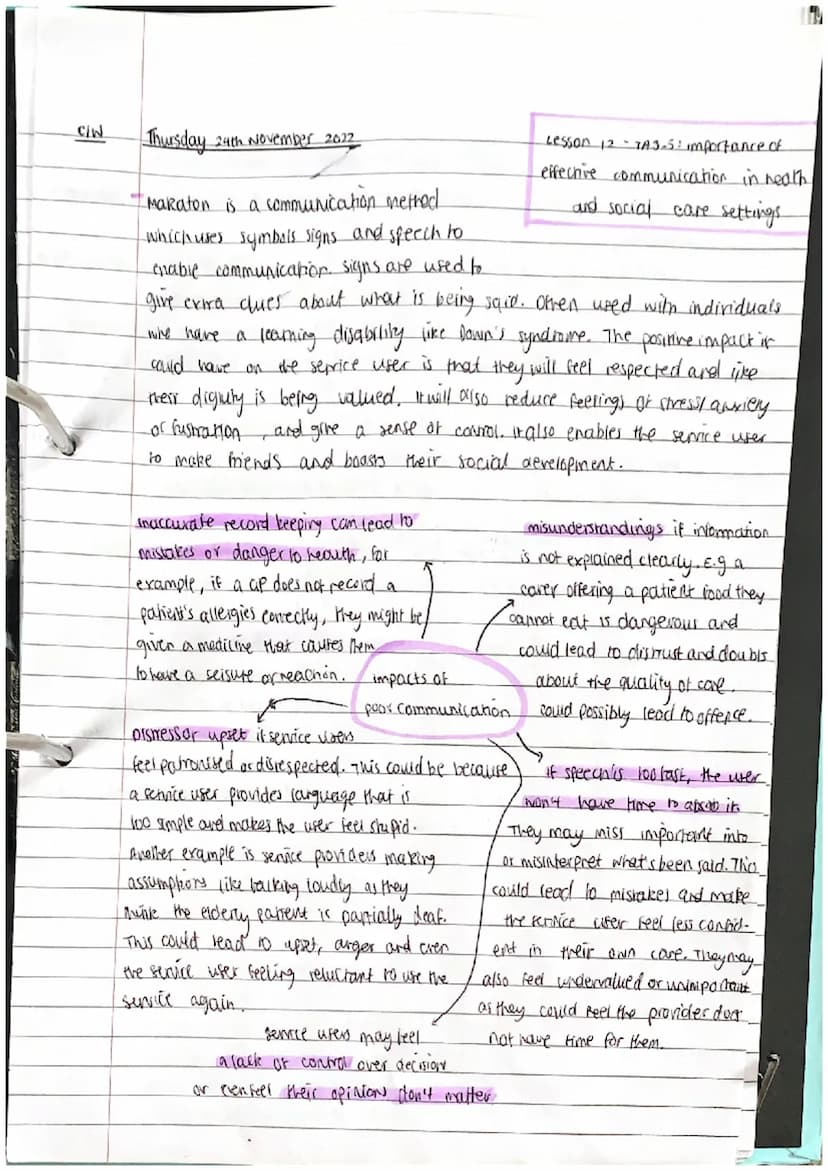 C/W
Thursday 24th November 2022
Lesson 12 - TA3.5: importance of
effective communication in health
and social care settings
- Makaton is a communication method
which uses symbols signs and speech to
enable communication. signs are used to
give extra clues about what is being said. Often used with individuals
who have a learning disability like Down's syndrome. The positive impact it
could have on the service user is that they will feel respected and like
their dignity is being valued. It will also reduce feelings of stress/anxiety
or fustration , and give a sense of control. it also enables the service user
to make friends and boosts their social development.
inaccurate record keeping can lead to
mistakes or danger to health, for
example, if a GP does not record a
patient's allergies correctly, they might be
given a medicine that causes them
to have a seisure or reaction.
misunderstandings if information
is not explained clearly. E.g a
carer offering a patient food they
cannot eat is dangerous and
could lead to distrust and doubts
about the quality of care.
could possibly lead to offence.
impacts of
poor communication
Distress or upset if service users
feel patronised or disrespected. This could be because
a service user provides language that is
too simple and makes the user feel stupid.
Another example is service providers making
assumptions like talking loudly as they
think the elderly patient is partially deaf.
This could lead to upset, anger and even
the service user feeling reluctant to use the
service again.
if speech is too fast, the user
won't have time to absob it.
They may miss important info
or misinterpret what's been said. This
could lead to mistakes and make
the service user feel less confid-
ent in their own care. They may
also feel undervalued or unimportant
as they could feel the provider does
not have time for them.
service users may feel
a lack of control over decision
or even feel their opinions don't matter